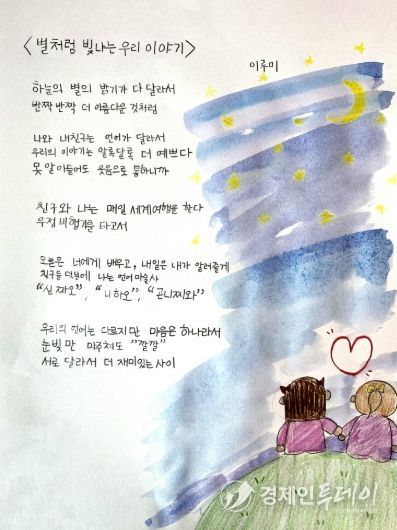 <별처럼 빛나는 우리 이야기>
이루미
하늘의 별의 밝기가 다 달라서
반짝 반짝 더 아름다운 것처럼
나와 내친구는 언어가 달라서
우리의 이야기는 알록달록 더 예쁘다
못 알아들어도 웃음으로 통하니까
친구와 나는 매일 세계여행을 한다
우정 비행기를 타고서
오늘은 너에게 배우고, 내일은 내가 알려줄게
친구들 덕분에 나는 언어마술사
"신짜오", "니하오", "곤니찌와"
우리의 언어는 다르지만 마음은 하나라서
눈빛만 마주쳐도 "깔깔"
서로 달라서 더 재미있는 사이
경제인투데이